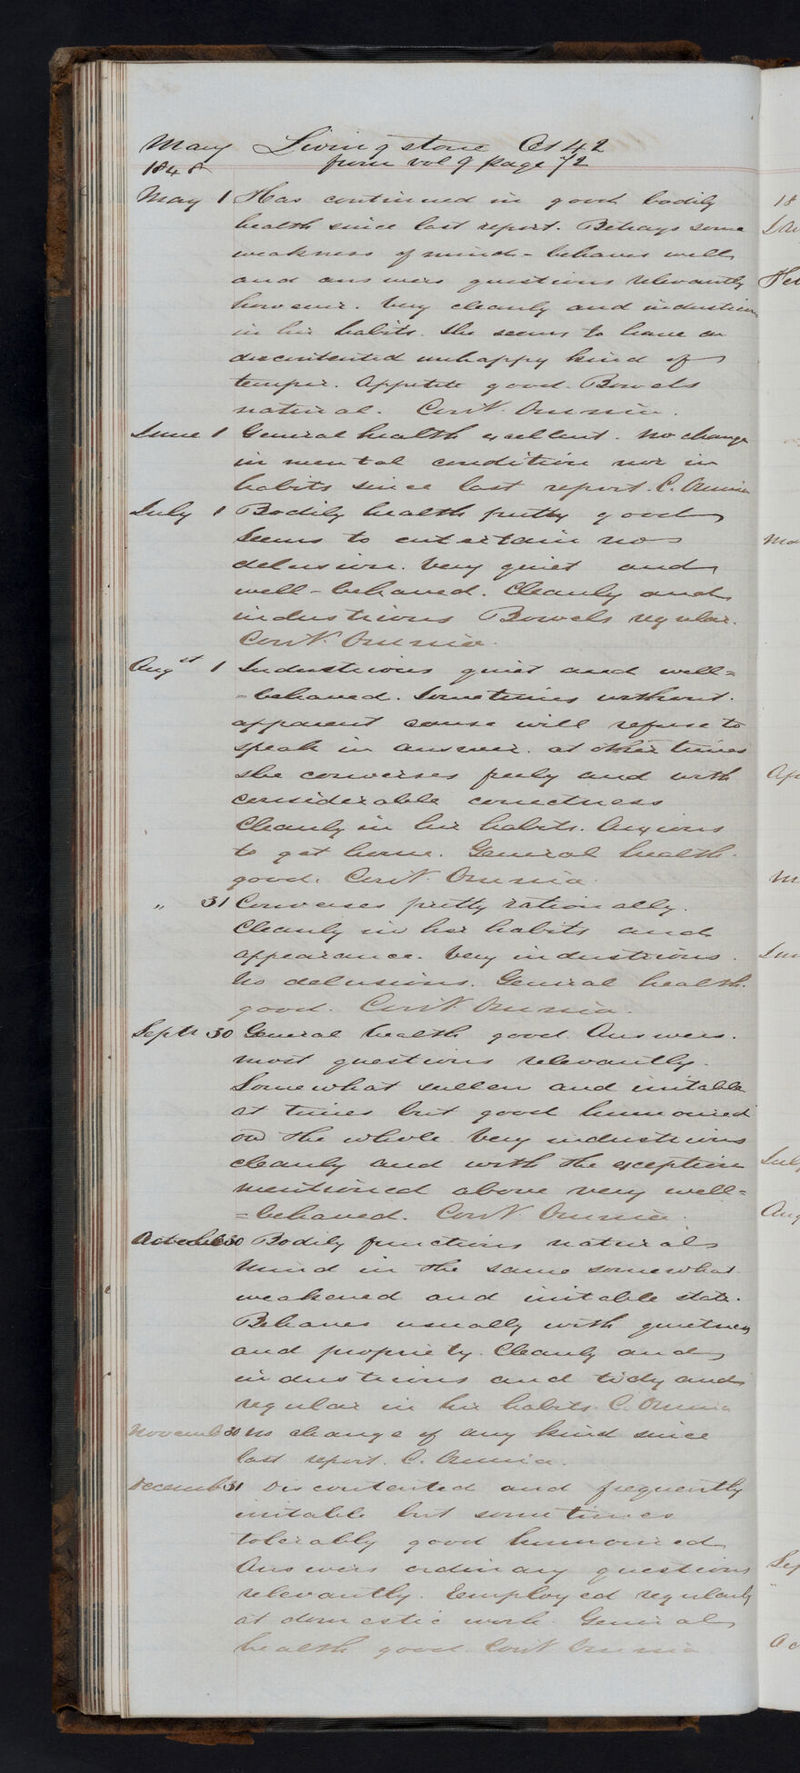 Mary Livingstone Æt 42
1848 from vol 9 page 72
May 1 Has continued in good bodily
health since last report. Betrays some
weakness of mind - behaves well
and answers questions relevantly
however. Very cleanly and industrious
in her habits. She seems to have a
discontented unhappy kind of
temper. Appetite good. Bowels
natural. Cont. Omnia.
June 1 General health excellent. No change
in mental condition nor in
habits since last report. C. Omnia
July 1 Bodily health pretty good
Seems to entertain no
delusion. Very quiet and
well-behaved. Cleanly and
industrious Bowels regular.
Cont. Omnia.
Augst 1 Industrious quiet and well=
=behaved. Sometimes without
apparent cause will refuse to
speak in answer. at other times
she converses freely and with
considerable correctness
Cleanly in her habits. Anxious
to get home. General health
good. Cont. Omnia.
" 31 Converses pretty rationally.
Cleanly in her habits and
appearance. Very industrious.
No delusions. General health
good. Cont. Omnia.
Septr 30 General health good. Answers
most questions relevantly.
Somewhat sullen and irritable
at times but good humoured
on the whole. Very industrious
cleanly and with the exception
mentioned above very well=
=behaved. Cont. Omnia.
October 30 Bodily functions natural
Mind in the same somewhat
weakened and irritable state.
Behaves usually with quietness
and propriety. Cleanly and
industrious and tidy and
regular in her habits. C. Omnia
Novemb 30 No change of any kind since
last report. C. Omnia.
Decemb 31 Discontented and frequently
irritable but sometimes
tolerably good humoured
Answers ordinary questions
relevantly. Employed regularly
at domestic work. General
health good. Cont. Omnia